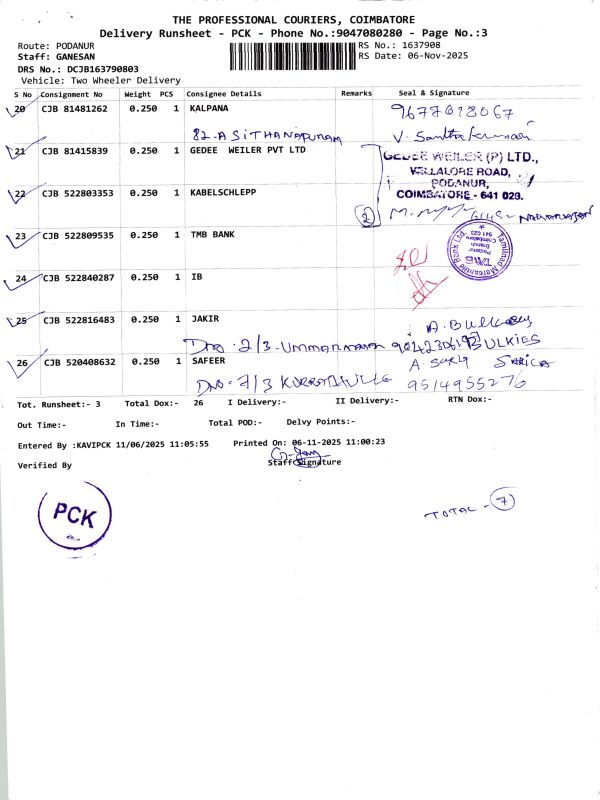 THE PROFESSIONAL COURIERS, COIMBATORE
Delivery Runsheet - PCK - Phone No.:9047080280 - Page No.:3
Route: PODANUR RS No.: 1637908
Staff: GANESAN RS Date: 06-Nov-2025
DRS No.: DCJB163790803
Vehicle: Two Wheeler Delivery
S No Consignment No Weight PCS Consignee Details Remarks Seal & Signature
20 CJB 81481262 0.250 1 KALPANA
82-A SITHANAPURAM V. Santha Kumari
21 CJB 81415839 0.250 1 GEDEE WEILER PVT LTD GEDEE WEILER (P) LTD.,
VELLALORE ROAD,
PODANUR,
22 CJB 522803353 0.250 1 KABELSCHLEPP COIMBATORE - 641 023.
2
23 CJB 522809535 0.250 1 TMB BANK Tamilnad Mercantile Bank Ltd. Podanur Branch Coimbatore 641 023
24 CJB 522840287 0.250 1 IB
25 CJB 522816483 0.250 1 JAKIR
DNo: 2/3- BULKIES
26 CJB 520408632 0.250 1 SAFEER SARICA
DNo: 7/3 9514955276
Tot. Runsheet:- 3 Total Dox:- 26 I Delivery:- II Delivery:- RTN Dox:-
Out Time:- In Time:- Total POD:- Delvy Points:-
Entered By :KAVIPCK 11/06/2025 11:05:55 Printed On: 06-11-2025 11:00:23
Verified By Staff Signature
PCK
TOTAL - 7